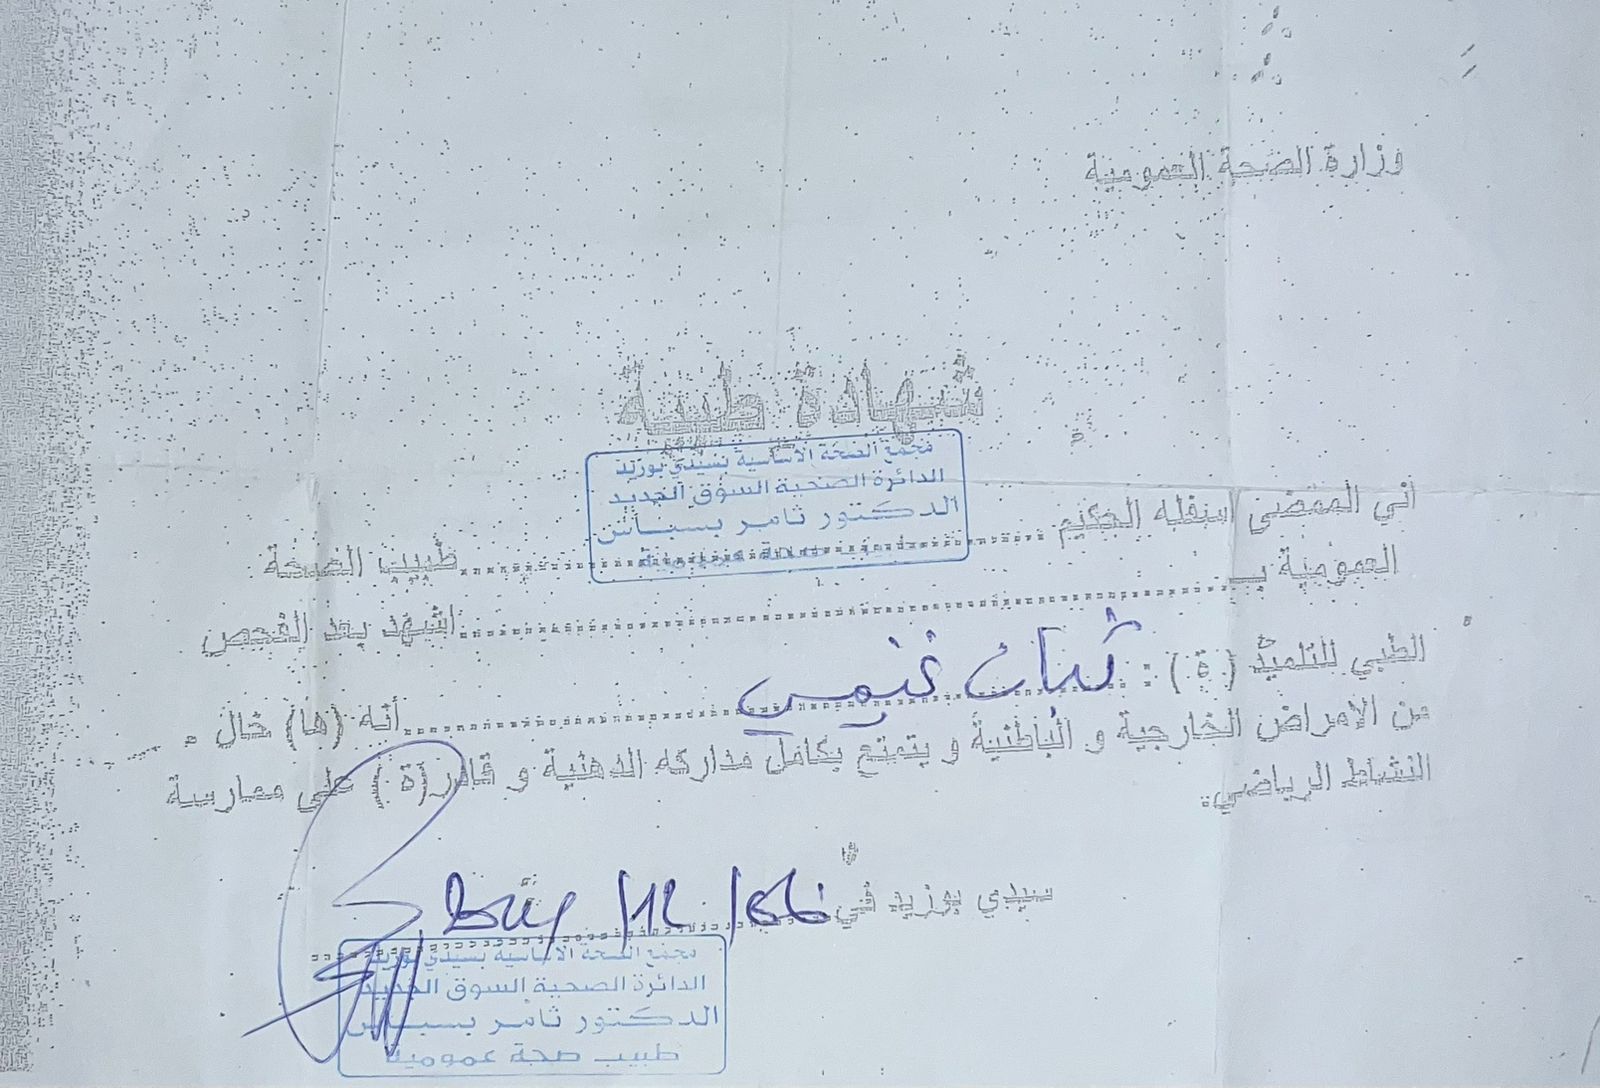 وزارة الصحة العمومية
شهادة طبية
مجمع الصحة الأساسية بسيدي بوزيد
الدائرة الصحية السوق الجديد
الدكتور ثامر بسباس
اني الممضي اسفله الحكيم ........ طبيب الصحة
العمومية بـ ........ اشهد بعد الفحص
الطبي للتلميذ (ة) : ........ غنيمي ........ أنه (ها) خال
من الامراض الخارجية و الباطنية و يتمتع بكامل مداركه الدهنية و قادر(ة) على ممارسة
النشاط الرياضي.
سيدي بوزيد في
مجمع الصحة الأساسية بسيدي بوزيد
الدائرة الصحية السوق الجديد
الدكتور ثامر بسباس
طبيب صحة عمومية